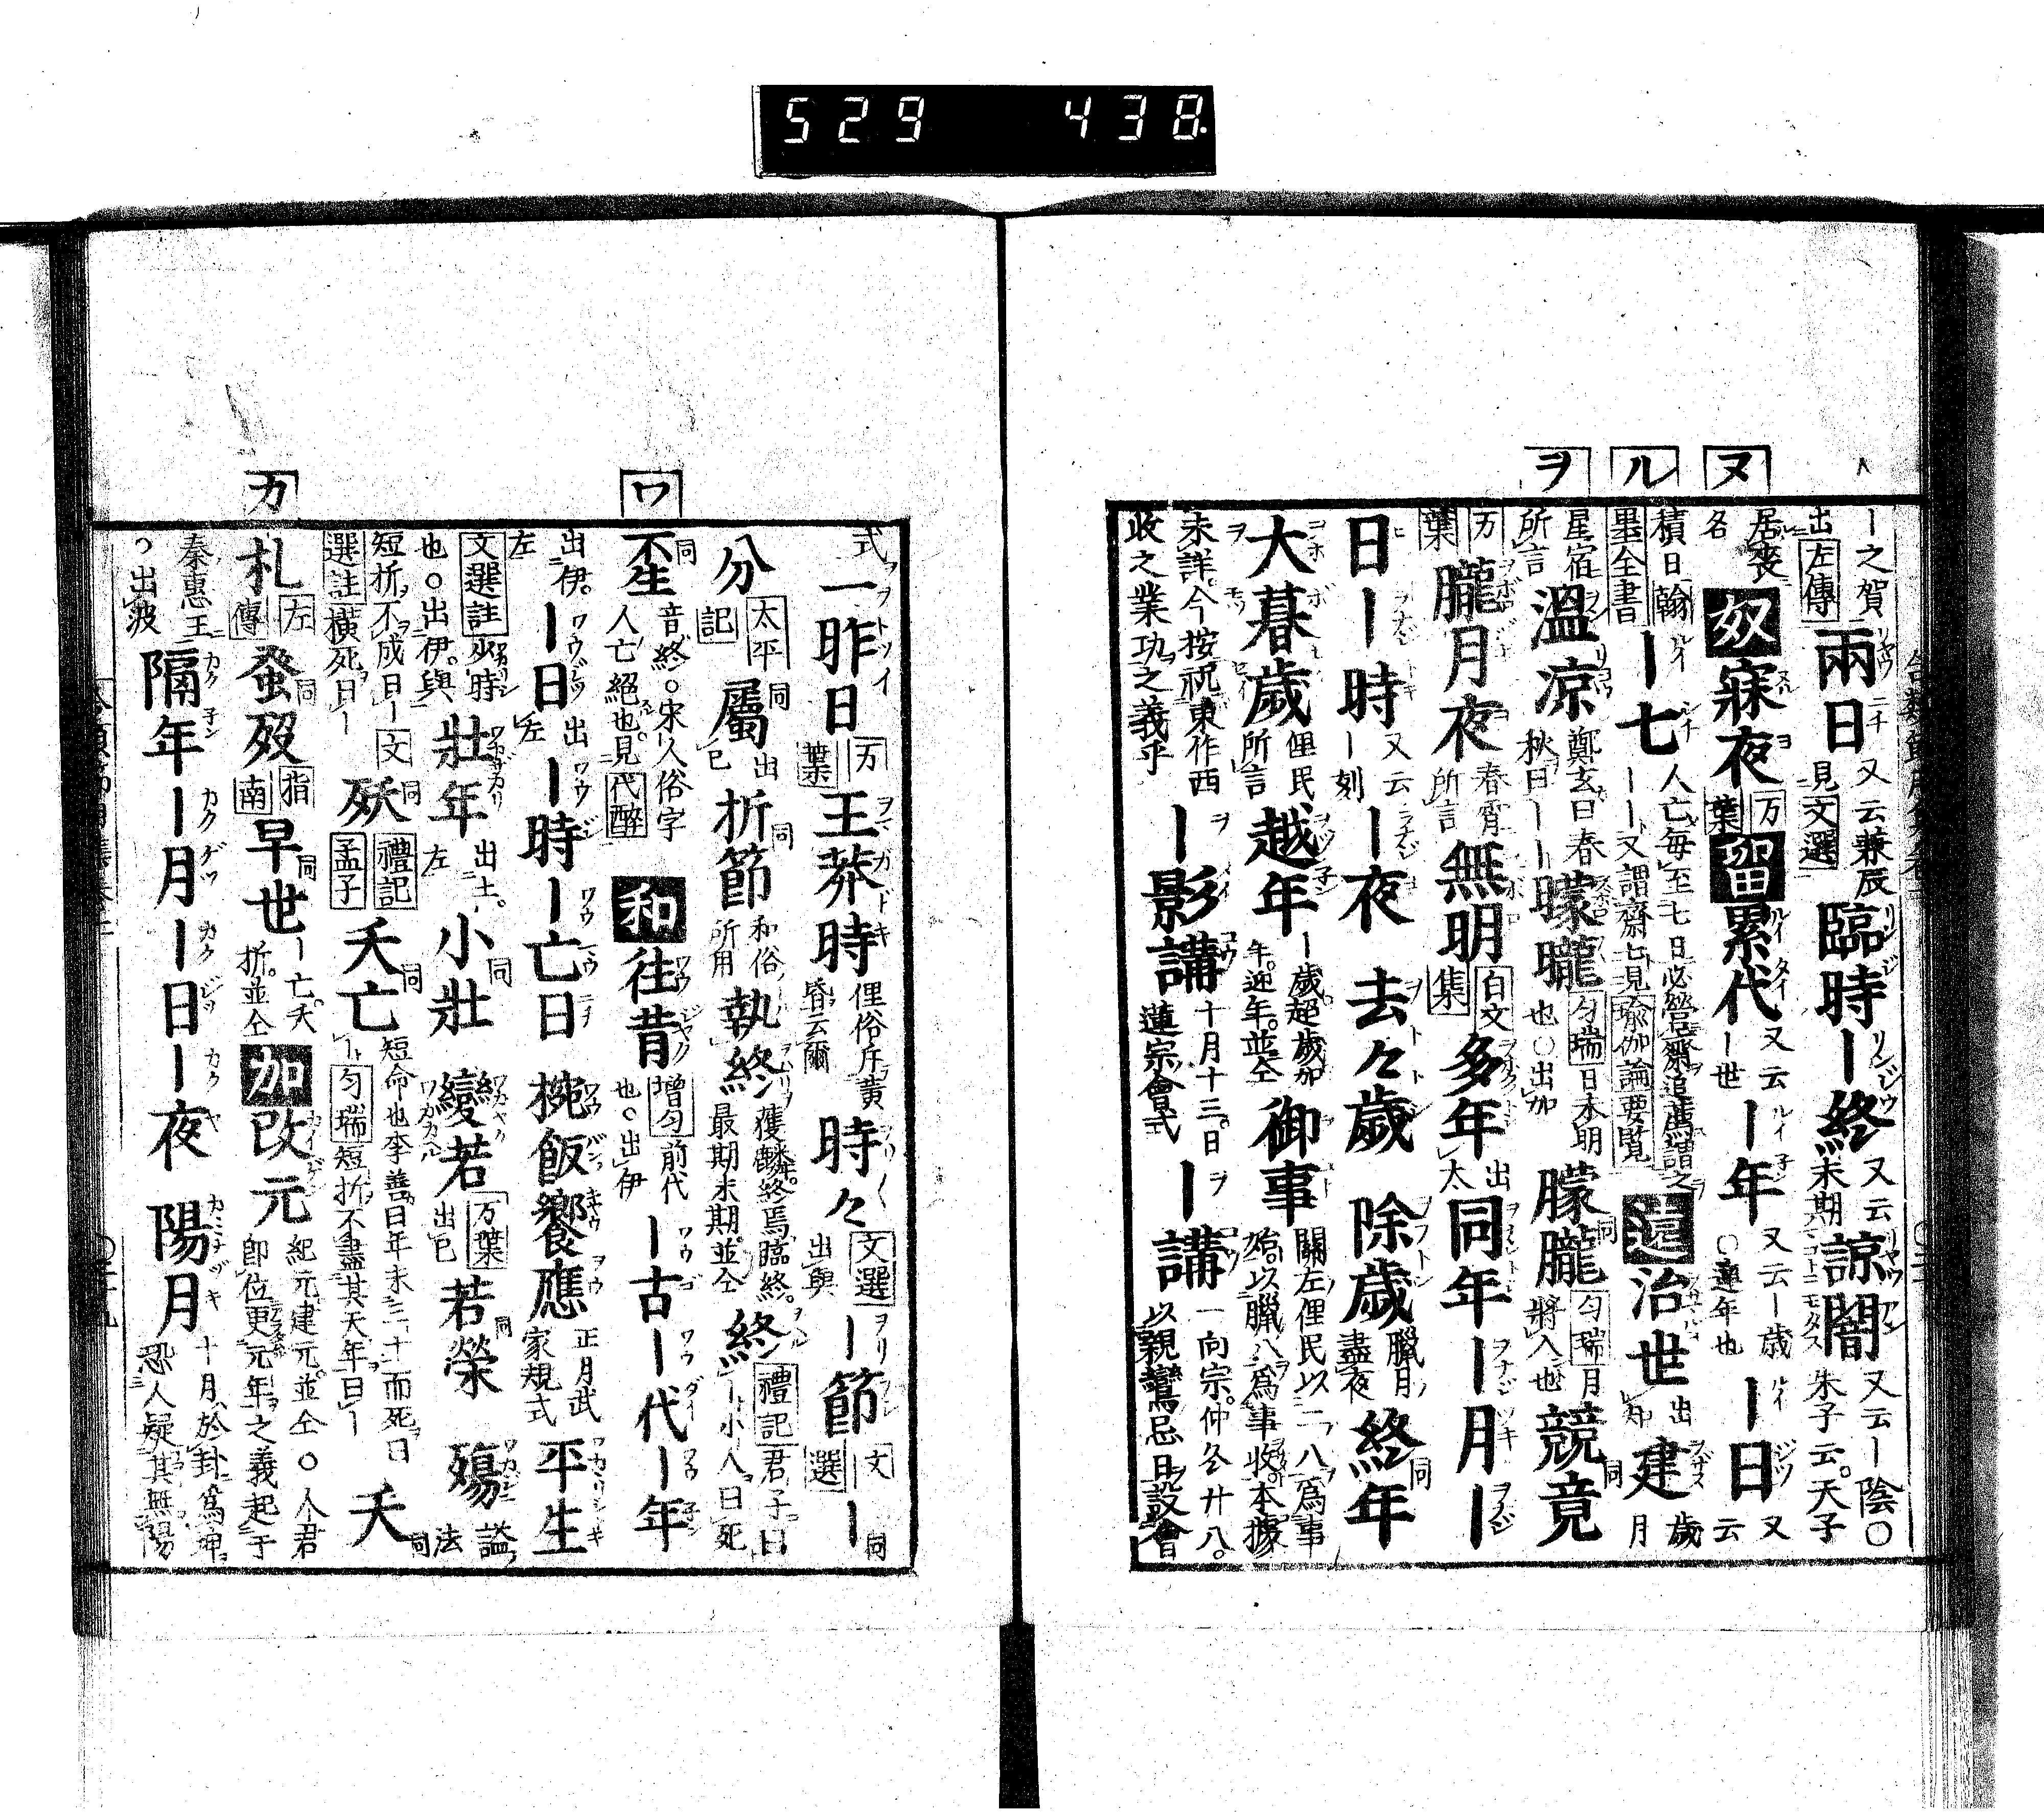 529 438
ヌ
ル
ヲ
ー之賀 出左傳 兩日 又云兼辰 見文選 臨時 ー終 又云末期 諒闇 又云ー陰○朱子云天子
居喪名 奴 寐夜 万葉 留 累代 又云ー世 ー年 又云ー歳○連年也 ー日 又云
積日翰墨全書 ー七 人亡毎至七日必營齋追薦謂之ーー又謂齋七見瑜伽論要覧 遠 治世 出知 建 歳月
星宿所言 溫凉 鄭玄曰春秋曰ーー 曚曨 匀瑞日未明也○出加 朦朧 同 匀瑞月將入也 競竟 同
万葉 朧月夜 春宵所言 無明 白文集 多年 出太 同年 ー月 ー
日 ー時 又云ー刻 ー夜 去々歳 除歳 臘月盡夜 終年 同
大暮歳 俚民所言 越年 ー歳超歳加年迎年並仝 御事 關左俚民以二八爲事始以臘八爲事收本據
未詳今按祝東作西收之業功之義乎 ー影講 十月十三日蓮宗會式 ー講 一向宗仲冬廿八以親鸞忌日設會
ワ
カ
式 一昨日 万葉 王莽時 俚俗斥黄昏云爾 時々 文選出與 ー節 文選 ーー 同
分 太平記 屬 同 出巳 折節 和俗所用 執終 獲麟終焉臨終最期末期並仝 終 禮記君子曰ー小人曰死
同 音終○宋人俗字人亡絕也見代醉 和 往昔 增匀前代也○出伊 ー古 ー代 ー年
出伊 左 ー日 出左 ー時 ー亡日 椀飯饗應 正月武家規式 平生
文選註少時也○出伊與 壯年 出土左 小壯 同 變若 万葉出巳 若榮 同 殤 謚法
短折不成曰ー 文選註橫死曰ー 殀 同 禮記孟子 夭亡 同 短命也李善曰年未三十而死曰ー 匀瑞短折不盡其天年曰ー 夭 同
札 左傳 蚤歿 同 指南 早世 同 ー亡夭折並仝 加 改元 紀元建元並仝○人君即位更元年之義起于
秦惠王出波 隔年 ー月 ー日 ー夜 陽月 十月於卦爲坤恐人疑其無陽